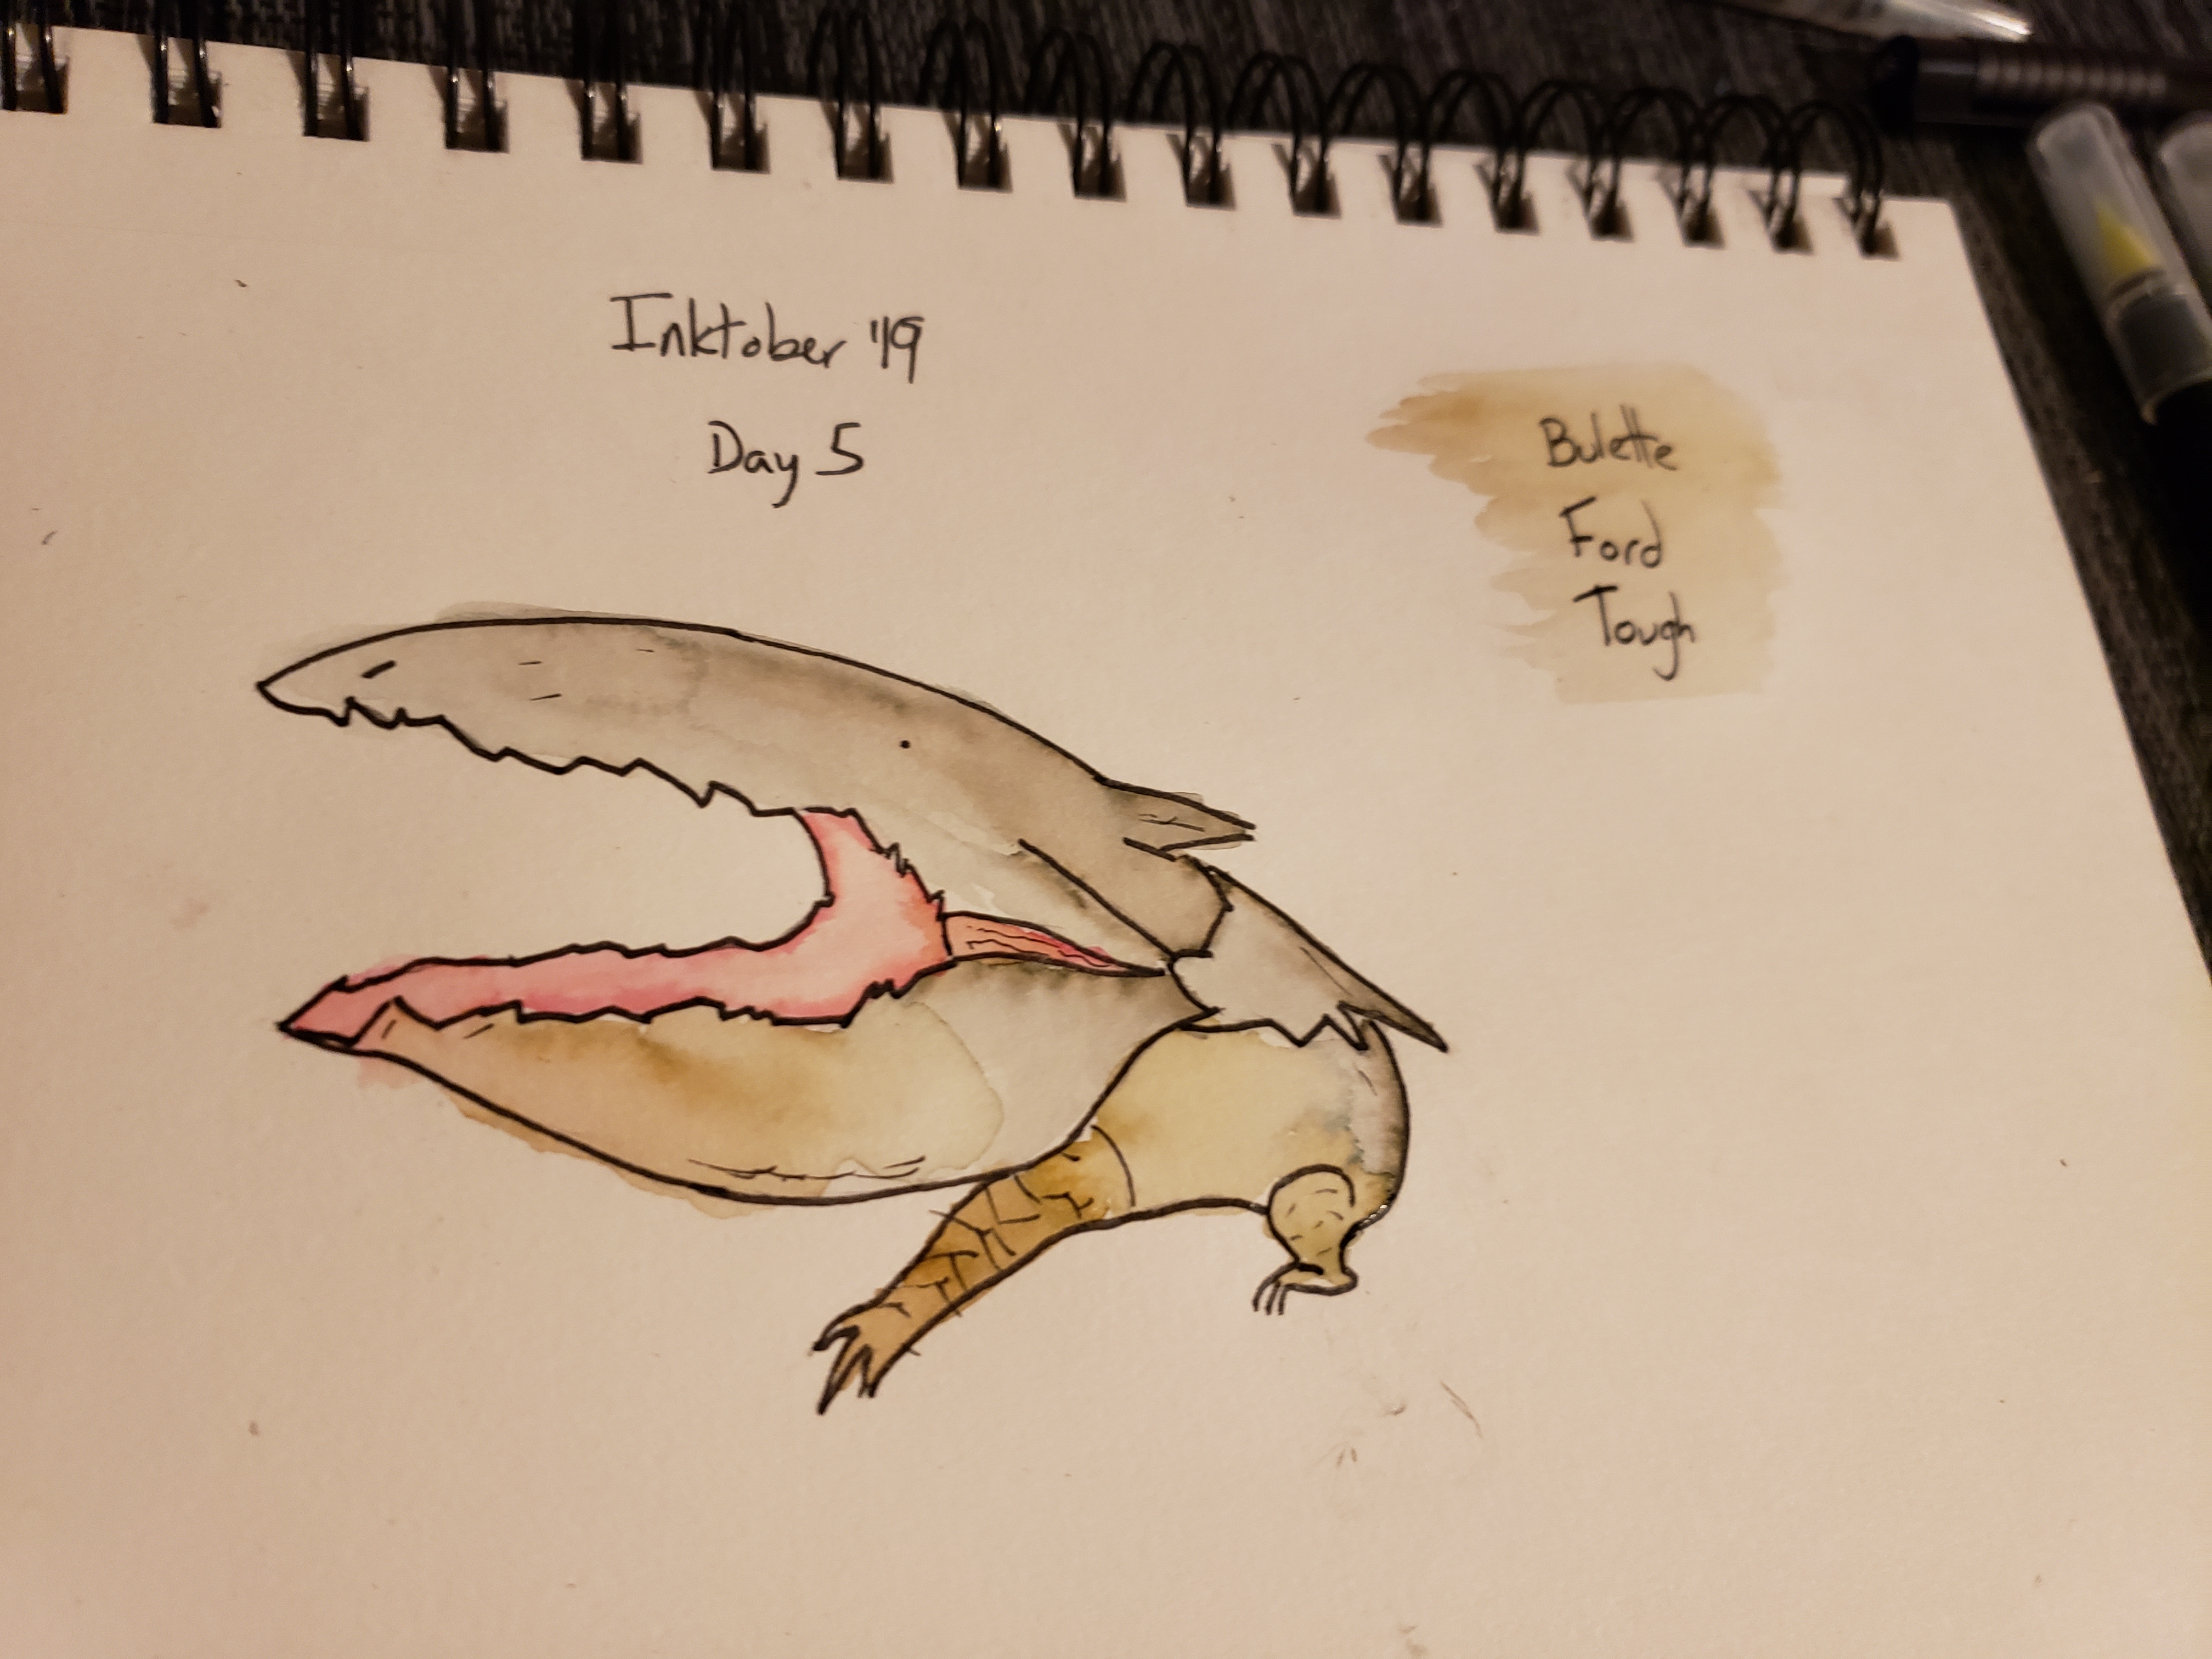 Inktober '19
Day 5
Bulette
Ford
Tough